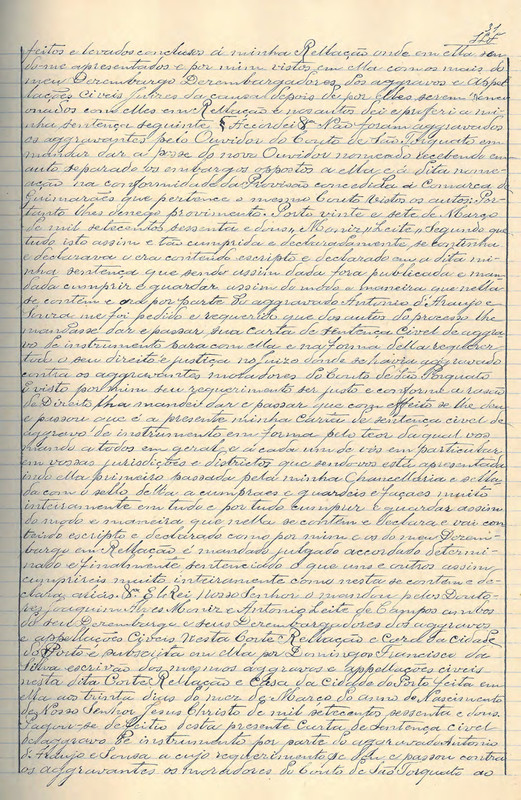 feitos e levados conclusos á minha Rellação onde em ella sen
do me apresentados e por mim vistos em ella com os mais do
meu Dezembargo Dezembargadores dos aggravos e Appel
lações Civeis Juizes da causa depois de por elles serem
com elles em Rellação e nos autos dei e proferi a mi
nha sentença seguinte § Accordei & Não foram aggravados
os aggravantes pelo Ouvidor do Couto de São Torquato em
mandar dar a posse do novo Ouvidor nomeado recebendo em
auto separado os embargos oppostos a ella e á dita nome-
ação na conformidade da Provisão concedida a Comarca de
Guimarães que pertence o mesmo Couto Vistos os autos; Por
tanto lhes denego provimento. Porto vinte e sete de Março
de mil setecentos sessenta e dous, Moniz, Leite, Segundo que
tudo isto assim e tão cumprida e declaradamente se continha
e declarava e era conteudo escripto e declarado em a dita mi
nha sentença que sendo assim dada fora publicada e man
dada cumprir e guardar assim do modo e maneira que nella
se contem e ora por parte do aggravado Antonio d'Araujo e
Souza me foi pedido e requerido que dos autos do processo lhe
mandasse dar e passar sua carta de sentença civel de aggra
vo de instrumento para com ella e na forma della requerer
tudo o seu direito e justiça no Juizo donde se havia aggravado
contra os aggravantes moradores do Couto de São Torquato
E visto por mim seu requerimento ser justo e conforme a rasão
de Direito lha mandei dar e passar que com effeito se lhe deu
e passou que é a presente minha Carta de sentença civel de
aggravo de instrumento em forma pelo teor da qual vos
mando a todos em geral e a cada um de vós em particular
em vossas jurisdições e districtos que sendo vos esta apresentada
indo ella primeiro passada pela minha Chancellaria e sella
da com o sello della a cumpraes e guardeis e façaes muito
inteiramente em tudo e por tudo cumprir e guardar assim
do modo e maneira que nella se contem e declara e vai con
teudo escripto e declarado como por mim e os do meu Dezem
bargo em Rellação é mandado julgado accordado determi
nado e finalmente sentenciado o que uns e outros assim
cumprireis muito inteiramente como nesta se contem e de-
clara El Rei Nosso Senhor o mandou pelos Douto
res Joaquim Alves Moniz e Antonio Leite de Campos ambos
do seu Dezembargo e seus Dezembargadores dos aggravos
e appellações Civeis nesta Corte Rellação e Caza da Cidade
do Porto é subscripta em ella por Domingos Francisco da
Silva escrivão dos mesmos aggravos e appellações civeis
nesta dita Corte Rellação e Casa da Cidade do Porto feita em
ella aos trinta dias do mez de Março do anno do Nascimento
de Nosso Senhor Jesus Christo de mil setecentos sessenta e dous.
Pagou-se de feitio desta presente Carta de sentença civel
de aggravo de instrumento por parte do aggravado Antonio
d'Araujo e Sousa a cujo requerimento se deu e passou contra
os aggravantes os moradores do Couto de São Torquato ao